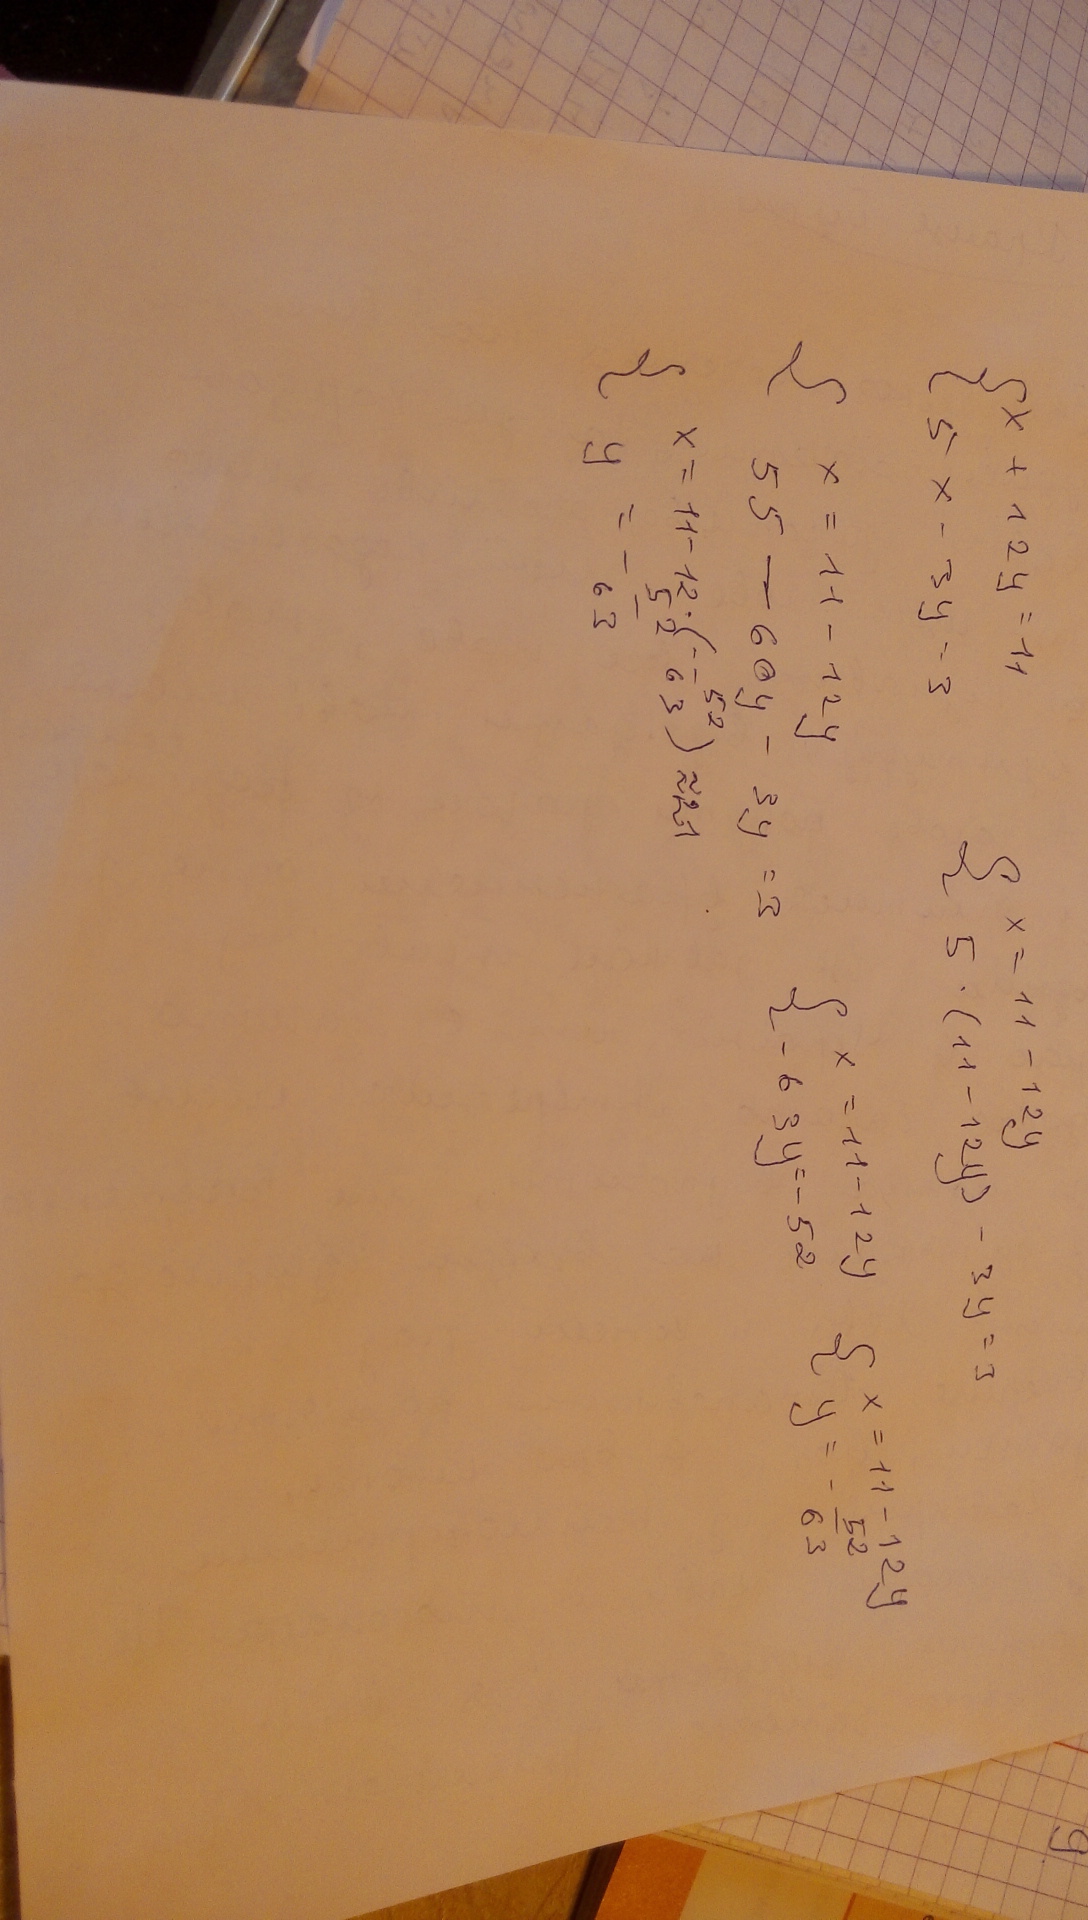 { x + 12y = 11
5x - 3y = 3
{ x = 11 - 12y
5 · (11 - 12y) - 3y = 3
{ x = 11 - 12y
55 — 60y - 3y = 3
{ x = 11 - 12y
-63y = -52
{ x = 11 - 12y
y = - 52/63
{ x = 11 - 12 · (- 52/63) ≈ 21
y = - 52/63